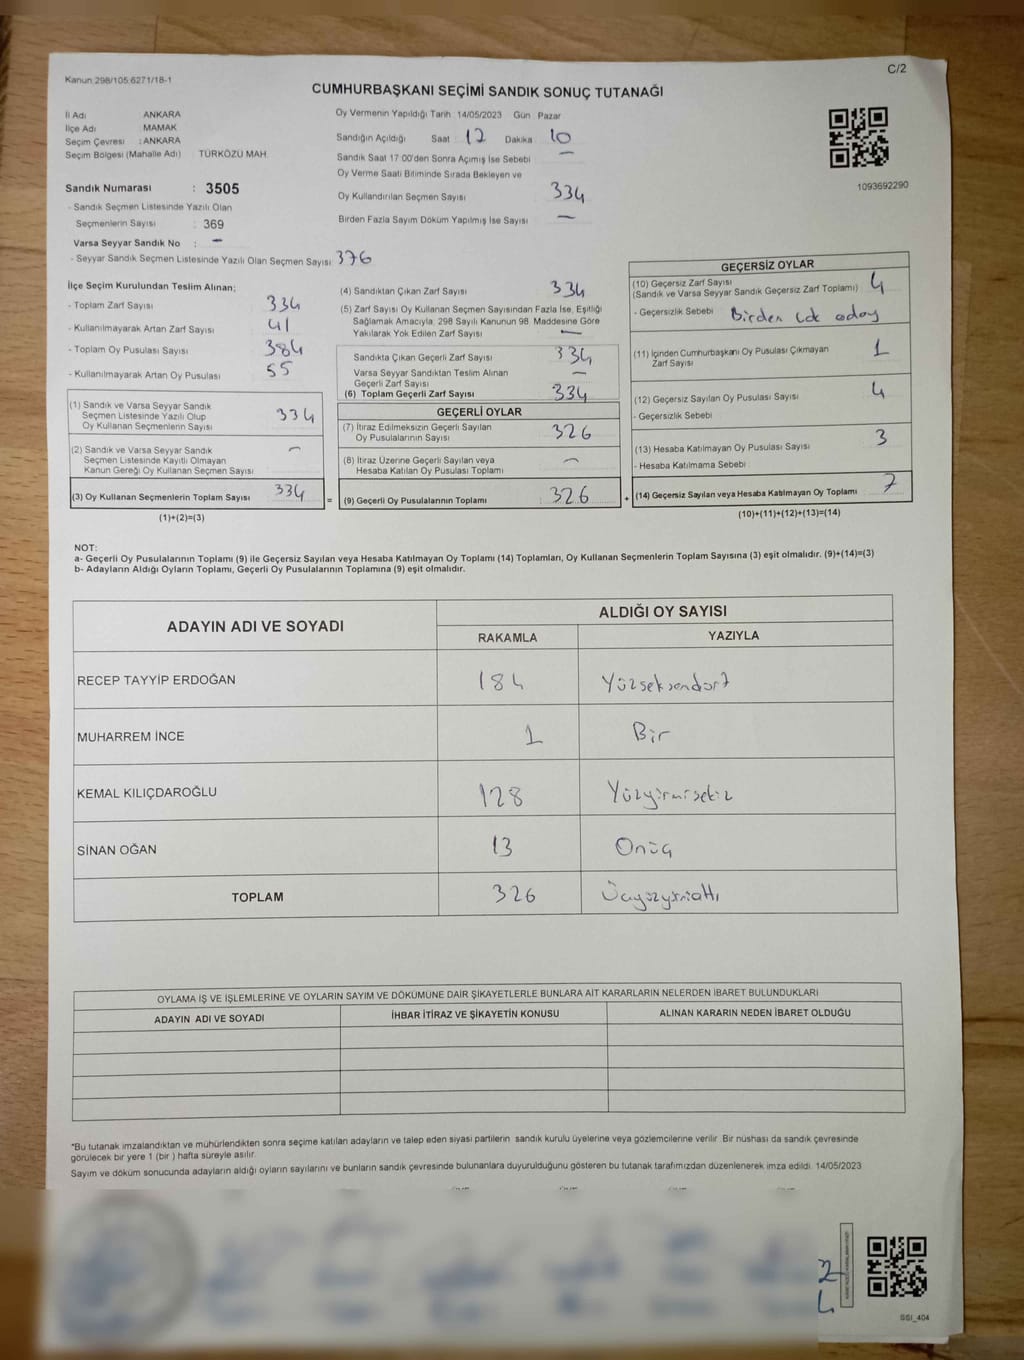 Kanun 298/105 6271/18-1
C/2
CUMHURBAŞKANI SEÇİMİ SANDIK SONUÇ TUTANAĞI
İl Adı ANKARA
İlçe Adı MAMAK
Seçim Çevresi : ANKARA
Seçim Bölgesi (Mahalle Adı) TÜRKÖZÜ MAH.
Sandık Numarası : 3505
- Sandık Seçmen Listesinde Yazılı Olan
Seçmenlerin Sayısı : 369
Varsa Seyyar Sandık No : -
- Seyyar Sandık Seçmen Listesinde Yazılı Olan Seçmen Sayısı 376
Oy Vermenin Yapıldığı Tarih 14/05/2023 Gün Pazar
Sandığın Açıldığı Saat 17 Dakika 10
Sandık Saat 17:00'den Sonra Açımış İse Sebebi -
Oy Verme Saati Bitiminde Sırada Bekleyen ve
Oy Kullandırılan Seçmen Sayısı 334
Birden Fazla Sayım Döküm Yapılmış İse Sayısı -
1093692290
İlçe Seçim Kurulundan Teslim Alınan;
- Toplam Zarf Sayısı 334
- Kullanılmayarak Artan Zarf Sayısı 41
- Toplam Oy Pusulası Sayısı 384
- Kullanılmayarak Artan Oy Pusulası 55
(1) Sandık ve Varsa Seyyar Sandık
Seçmen Listesinde Yazılı Olup
Oy Kullanan Seçmenlerin Sayısı 334
(2) Sandık ve Varsa Seyyar Sandık
Seçmen Listesinde Kayıtlı Olmayan
Kanun Gereği Oy Kullanan Seçmen Sayısı -
(3) Oy Kullanan Seçmenlerin Toplam Sayısı 334
(1)+(2)=(3)
=
(4) Sandıktan Çıkan Zarf Sayısı 334
(5) Zarf Sayısı Oy Kullanan Seçmen Sayısından Fazla İse, Eşitliği
Sağlamak Amacıyla, 298 Sayılı Kanunun 98. Maddesine Göre
Yakılarak Yok Edilen Zarf Sayısı -
Sandıkta Çıkan Geçerli Zarf Sayısı 334
Varsa Seyyar Sandıktan Teslim Alınan
Geçerli Zarf Sayısı -
(6) Toplam Geçerli Zarf Sayısı 334
GEÇERLİ OYLAR
(7) İtiraz Edilmeksizin Geçerli Sayılan
Oy Pusulalarının Sayısı 326
(8) İtiraz Üzerine Geçerli Sayılan veya
Hesaba Katılan Oy Pusulası Toplamı -
(9) Geçerli Oy Pusulalarının Toplamı : 326
+
GEÇERSİZ OYLAR
(10) Geçersiz Zarf Sayısı 4
(Sandık ve Varsa Seyyar Sandık Geçersiz Zarf Toplamı)
- Geçersizlik Sebebi Birden çok aday
(11) İçinden Cumhurbaşkanı Oy Pusulası Çıkmayan
Zarf Sayısı 1
(12) Geçersiz Sayılan Oy Pusulası Sayısı 4
- Geçersizlik Sebebi
(13) Hesaba Katılmayan Oy Pusulası Sayısı 3
- Hesaba Katılmama Sebebi
(14) Geçersiz Sayılan veya Hesaba Katılmayan Oy Toplamı 7
(10)+(11)+(12)+(13)=(14)
NOT:
a- Geçerli Oy Pusulalarının Toplamı (9) ile Geçersiz Sayılan veya Hesaba Katılmayan Oy Toplamı (14) Toplamları, Oy Kullanan Seçmenlerin Toplam Sayısına (3) eşit olmalıdır. (9)+(14)=(3)
b- Adayların Aldığı Oyların Toplamı, Geçerli Oy Pusulalarının Toplamına (9) eşit olmalıdır.
ADAYIN ADI VE SOYADI ALDIĞI OY SAYISI
RAKAMLA YAZIYLA
RECEP TAYYİP ERDOĞAN 184 Yüzseksendört
MUHARREM İNCE 1 Bir
KEMAL KILIÇDAROĞLU 128 Yüzyirmisekiz
SİNAN OĞAN 13 Onüç
TOPLAM 326 Üçyüzyirmialtı
OYLAMA İŞ VE İŞLEMLERİNE VE OYLARIN SAYIM VE DÖKÜMÜNE DAİR ŞİKAYETLERLE BUNLARA AİT KARARLARIN NELERDEN İBARET BULUNDUKLARI
ADAYIN ADI VE SOYADI İHBAR İTİRAZ VE ŞİKAYETİN KONUSU ALINAN KARARIN NEDEN İBARET OLDUĞU
"Bu tutanak imzalandıktan ve mühürlendikten sonra seçime katılan adayların ve talep eden siyasi partilerin sandık kurulu üyelerine veya gözlemcilerine verilir. Bir nüshası da sandık çevresinde
görülecek bir yere 1 (bir ) hafta süreyle asılır.
Sayım ve döküm sonucunda adayların aldığı oyların sayılarını ve bunların sandık çevresinde bulunanlara duyurulduğunu gösteren bu tutanak tarafımızdan düzenlenerek imza edildi. 14/05/2023
SSI_404